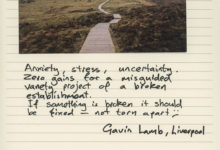 Anxiety, stress, uncertainty.
Zero gains for a misguided
vanety project of a broken
establishment.
If something is broken it should
be fixed – not torn apart
Gavin Lamb, Liverpool